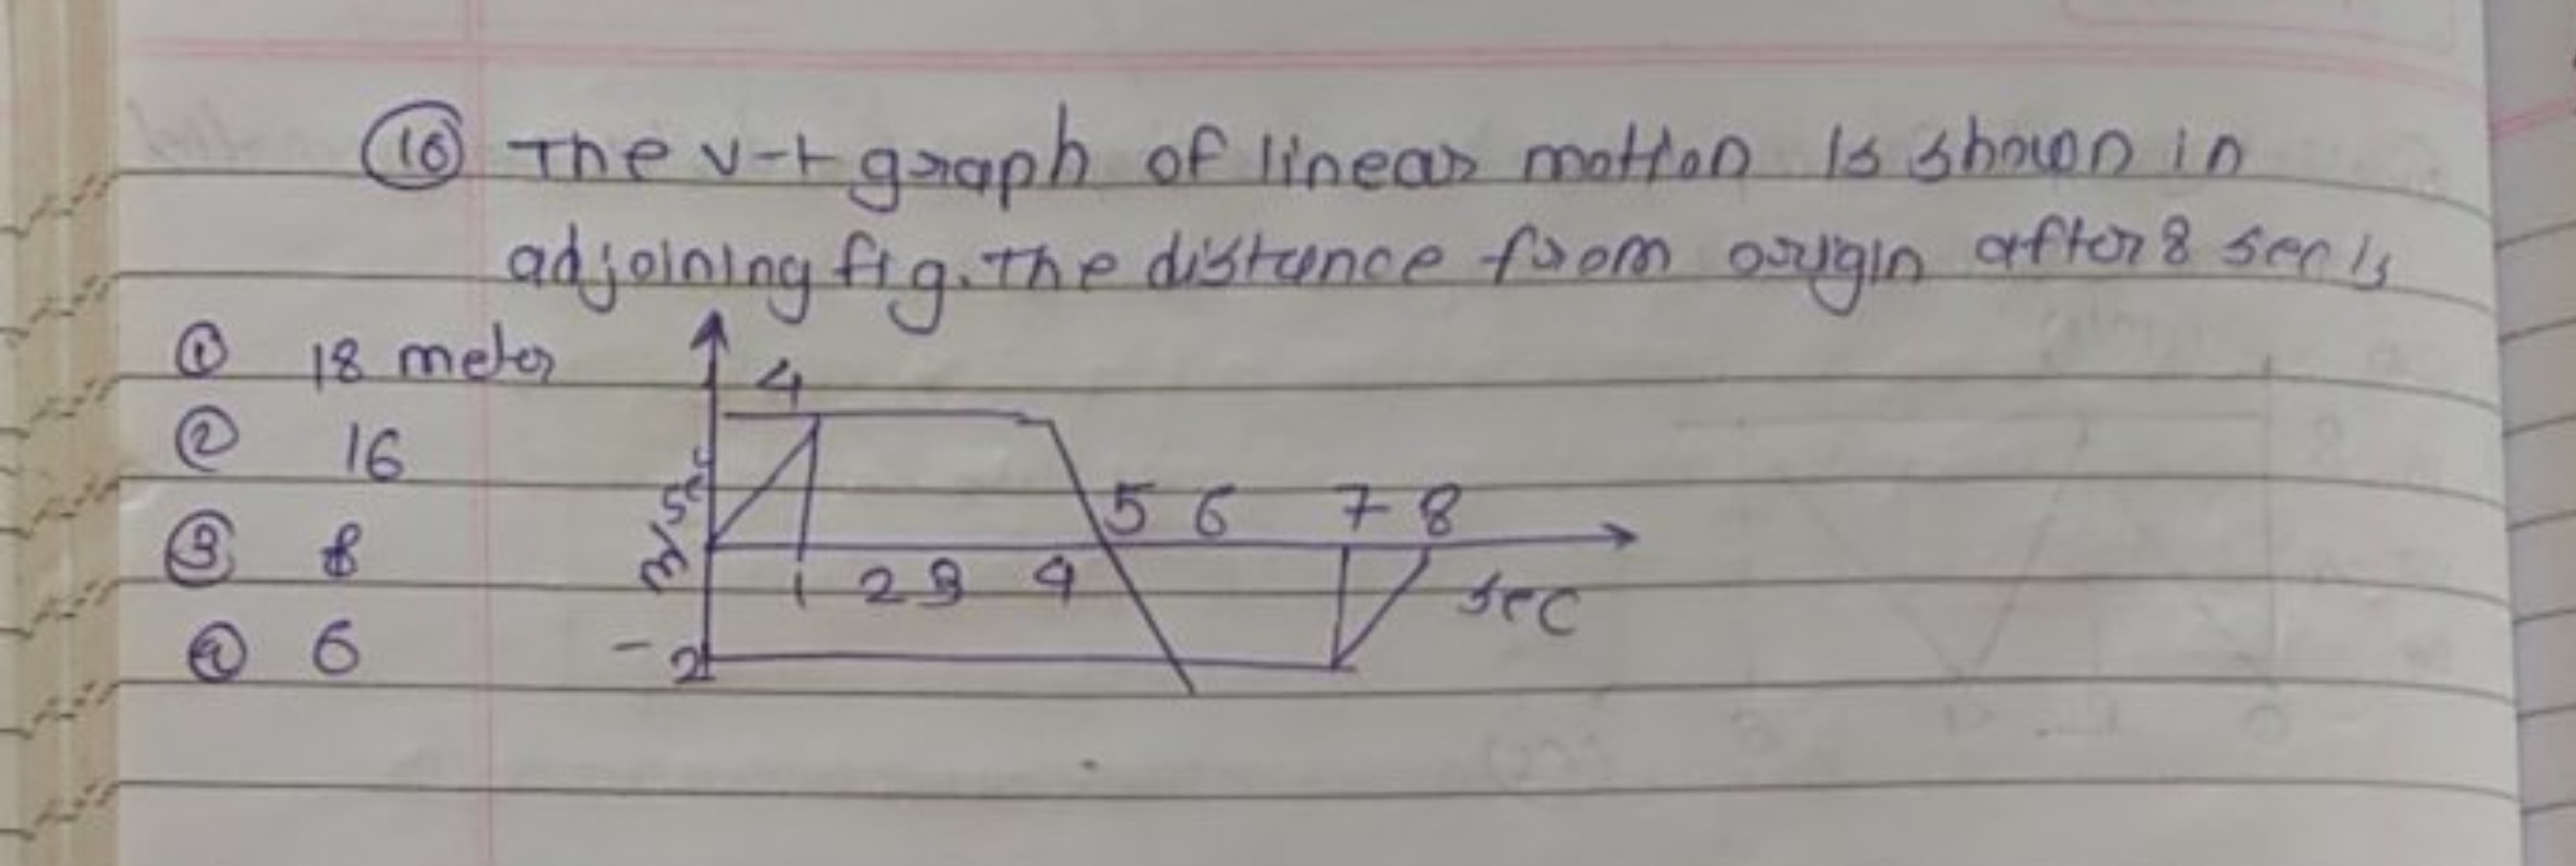 16 The v-t graph of linear motion is shown in
adjoining fig. The distance from origin after 8 sec is
1 18 meter
2 16
3 8
4 6
4
m/sec
5 6 7 8
1 2 3 4
sec
-2